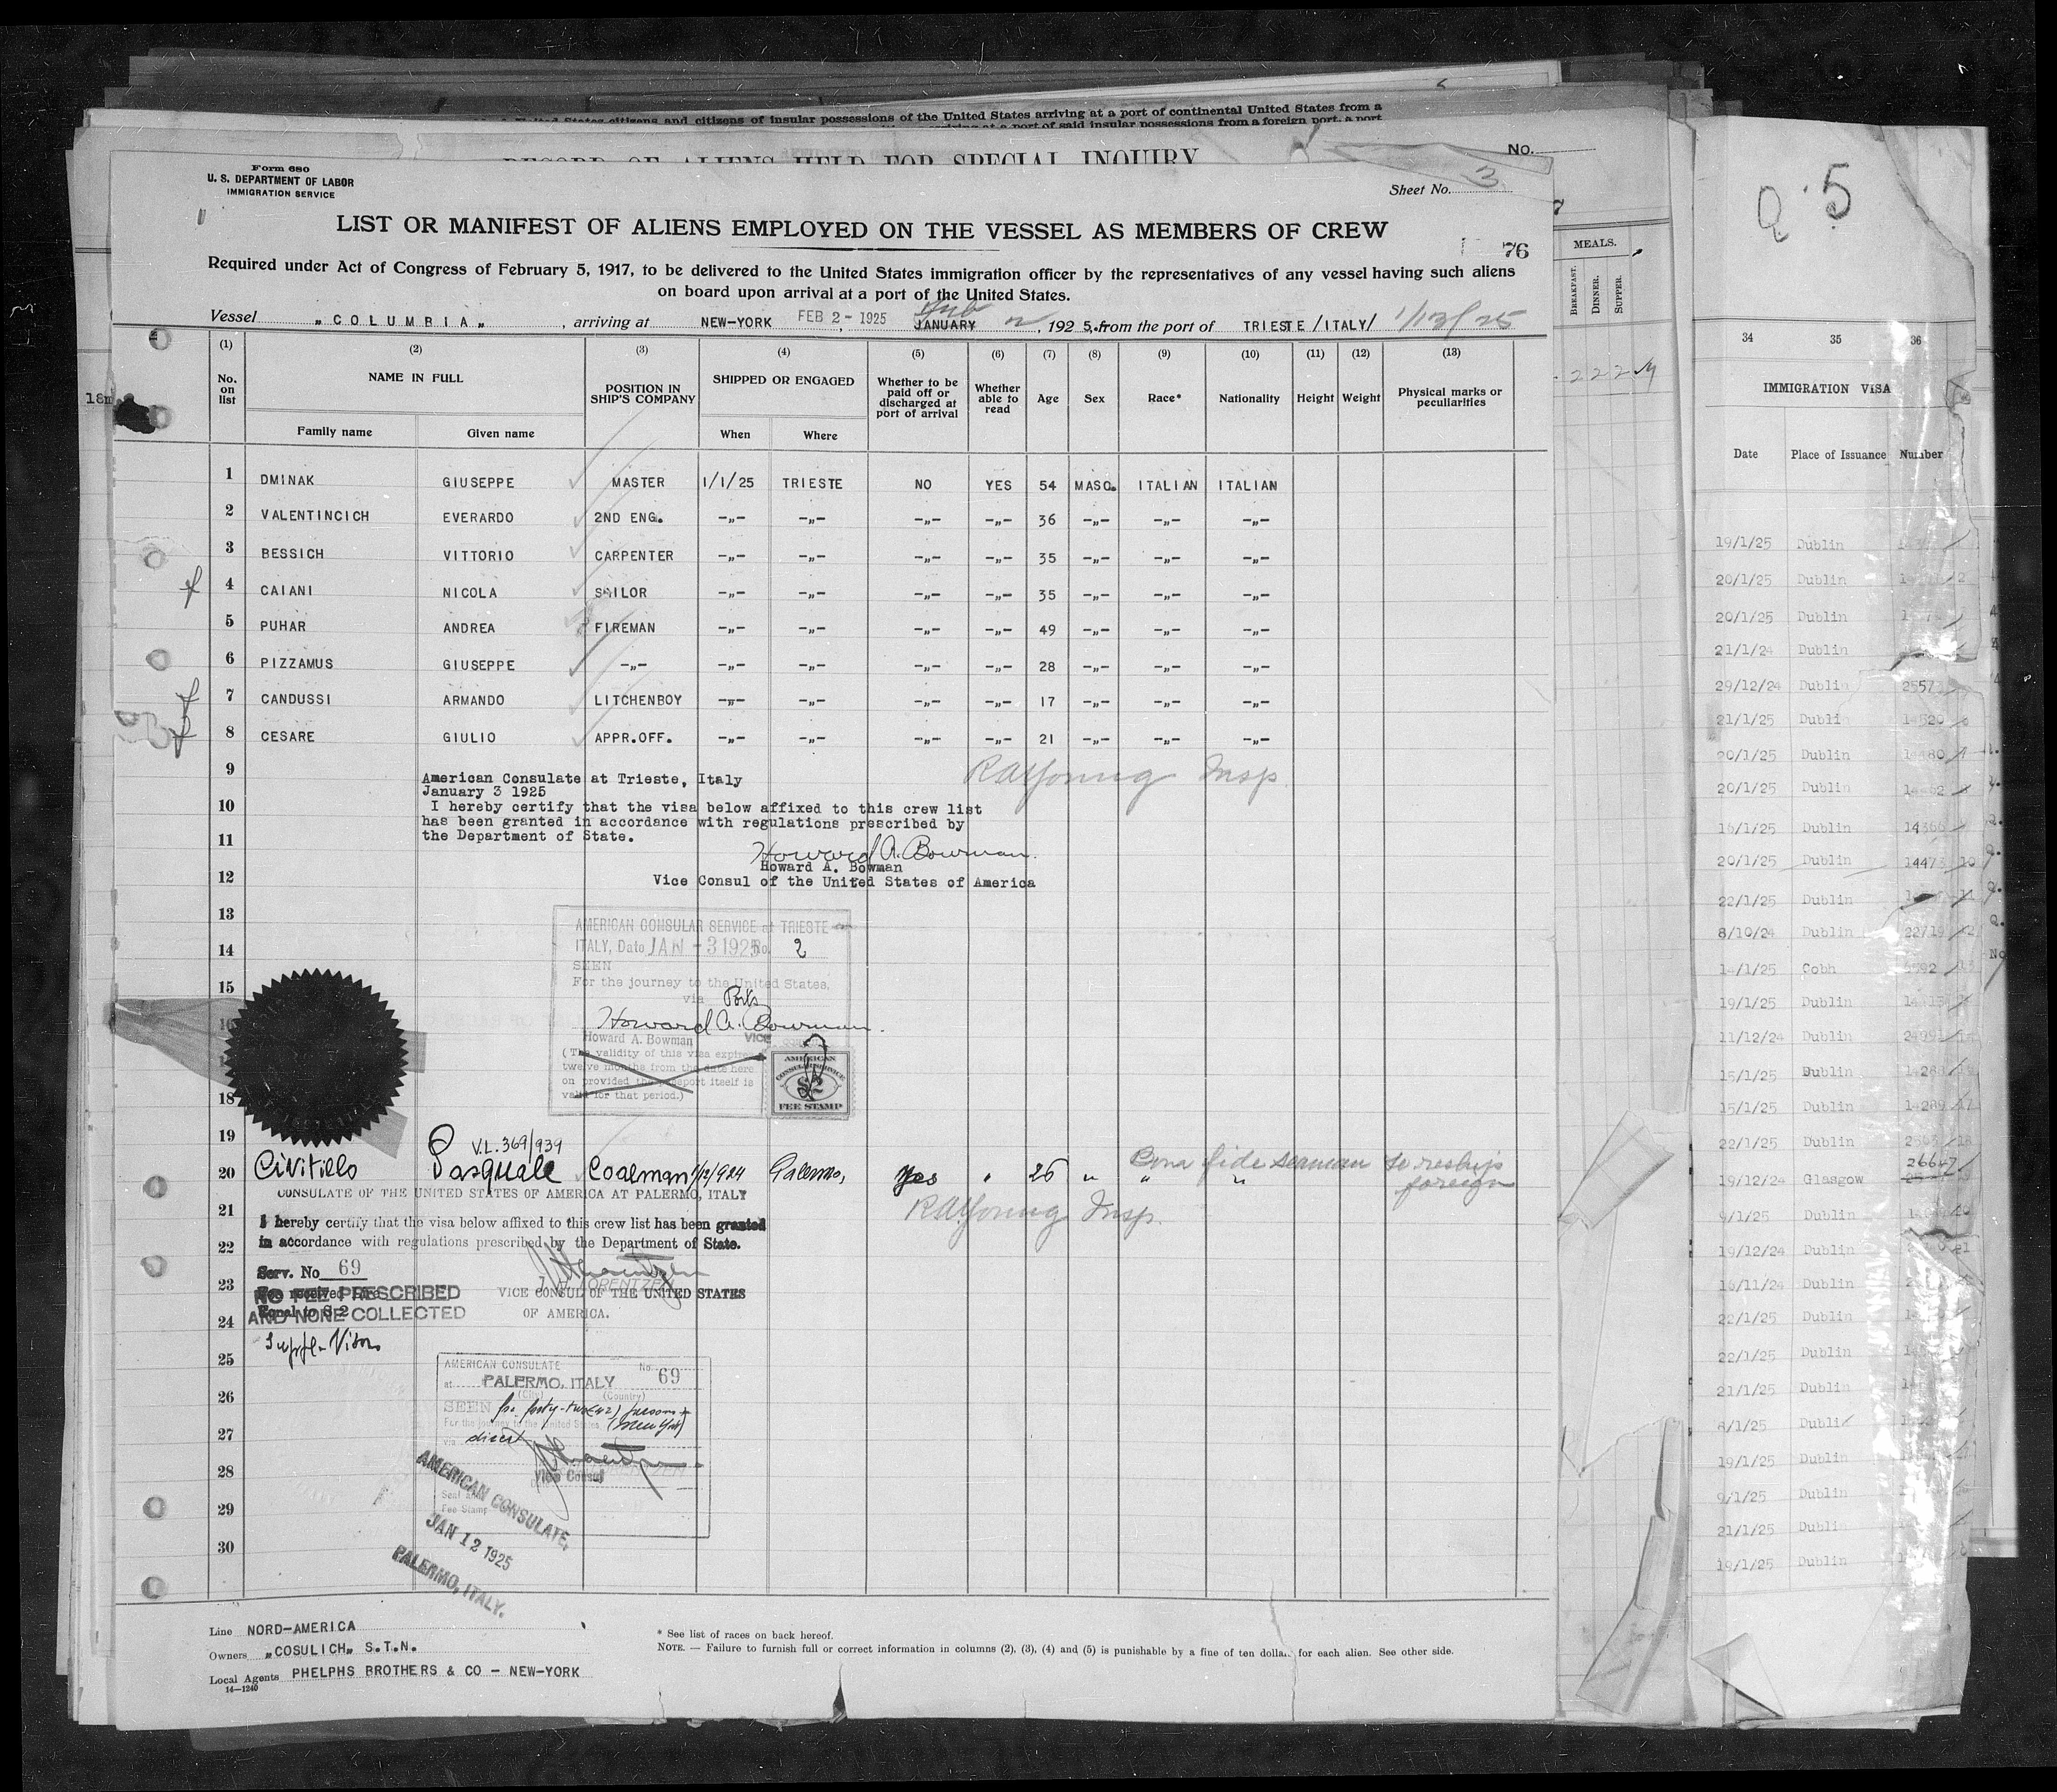 United States citizens and citizens of insular possessions of the United States arriving at a port of continental United States from a
arriving at a port of said insular possessions from a foreign port, a port
RECORD OF ALIENS HELD FOR SPECIAL INQUIRY
No.
Form 680
U. S. DEPARTMENT OF LABOR
IMMIGRATION SERVICE
Sheet No. 3
LIST OR MANIFEST OF ALIENS EMPLOYED ON THE VESSEL AS MEMBERS OF CREW
76
Required under Act of Congress of February 5, 1917, to be delivered to the United States immigration officer by the representatives of any vessel having such aliens
on board upon arrival at a port of the United States.
Vessel „COLUMBIA„, arriving at NEW-YORK FEB 2 - 1925, JANUARY Feb 2, 1925, from the port of TRIESTE /ITALY/ 1/13/25
(1) (2) (3) (4) (5) (6) (7) (8) (9) (10) (11) (12) (13)
No. on list NAME IN FULL POSITION IN SHIP'S COMPANY SHIPPED OR ENGAGED Whether to be paid off or discharged at port of arrival Whether able to read Age Sex Race* Nationality Height Weight Physical marks or peculiarities
Family name Given name When Where
1 DMINAK GIUSEPPE MASTER 1/1/25 TRIESTE NO YES 54 MASC. ITALIAN ITALIAN
2 VALENTINCICH EVERARDO 2ND ENG. -„- -„- -„- -„- 36 -„- -„- -„-
3 BESSICH VITTORIO CARPENTER -„- -„- -„- -„- 35 -„- -„- -„-
4 CAIANI NICOLA SAILOR -„- -„- -„- -„- 35 -„- -„- -„-
5 PUHAR ANDREA FIREMAN -„- -„- -„- -„- 49 -„- -„- -„-
6 PIZZAMUS GIUSEPPE -„- -„- -„- -„- -„- 28 -„- -„- -„-
7 CANDUSSI ARMANDO LITCHENBOY -„- -„- -„- -„- 17 -„- -„- -„-
8 CESARE GIULIO APPR.OFF. -„- -„- -„- -„- 21 -„- -„- -„-
9
American Consulate at Trieste, Italy
RAYoung Insp
January 3 1925
10 I hereby certify that the visa below affixed to this crew list
has been granted in accordance with regulations prescribed by
11 the Department of State.
Howard A. Bowman
Howard A. Bowman
12 Vice Consul of the United States of America
13
AMERICAN CONSULAR SERVICE at TRIESTE
14 ITALY, Date JAN -3 1925 No. 2
SEEN
For the journey to the United States,
15
via Ports
16
Howard A. Bowman
Howard A. Bowman VICE
(The validity of this visa expires
twelve months from the date here
on provided the passport itself is
valid for that period.)
AMERICAN CONSULAR SERVICE $2 FEE STAMP
18
19 V.L. 369/939
20 Civitillo Pasquale Coalman 1/12/924 Palermo, yes „ 26 „ „ „
Bona fide seaman to reship foreign
CONSULATE OF THE UNITED STATES OF AMERICA AT PALERMO, ITALY
21
RAYoung Insp.
I hereby certify that the visa below affixed to this crew list has been granted
22 in accordance with regulations prescribed by the Department of State.
Serv. No 69
23
J. H. LORENTZEN
NO FEE PRESCRIBED
VICE CONSUL OF THE UNITED STATES
Equal to $ 2
24 AND NONE COLLECTED
OF AMERICA.
Suppl. Visa
25
AMERICAN CONSULATE No. 69
at PALERMO, ITALY
(City) (Country)
26 SEEN for forty-two (42) persons
For the journey to the United States (New York)
27 via direct
28 Vice Consul
AMERICAN CONSULATE,
Seal and
Fee Stamp
29
JAN 12 1925
30
PALERMO, ITALY.
Line NORD-AMERICA
Owners „COSULICH„ S.T.N.
Local Agents PHELPHS BROTHERS & CO - NEW-YORK
14—1240
* See list of races on back hereof.
NOTE. — Failure to furnish full or correct information in columns (2), (3), (4) and (5) is punishable by a fine of ten dollars for each alien. See other side.
18m
7
MEALS.
BREAKFAST. DINNER. SUPPER.
- 2 2 2
Q 5
34 35 36
IMMIGRATION VISA
Date Place of Issuance Number
19/1/25 Dublin
20/1/25 Dublin
20/1/25 Dublin
21/1/24 Dublin
29/12/24 Dublin
21/1/25 Dublin 14520
20/1/25 Dublin
20/1/25 Dublin
16/1/25 Dublin 14366
20/1/25 Dublin
22/1/25 Dublin
8/10/24 Dublin 22719
14/1/25 Cobh
19/1/25 Dublin
11/12/24 Dublin
15/1/25 Dublin
15/1/25 Dublin 14289
22/1/25 Dublin
26647
19/12/24 Glasgow
9/1/25 Dublin
19/12/24 Dublin
16/11/24 Dublin
22/1/25 Dublin
22/1/25 Dublin
21/1/25 Dublin
8/1/25 Dublin
19/1/25 Dublin
9/1/25 Dublin
21/1/25 Dublin
19/1/25 Dublin